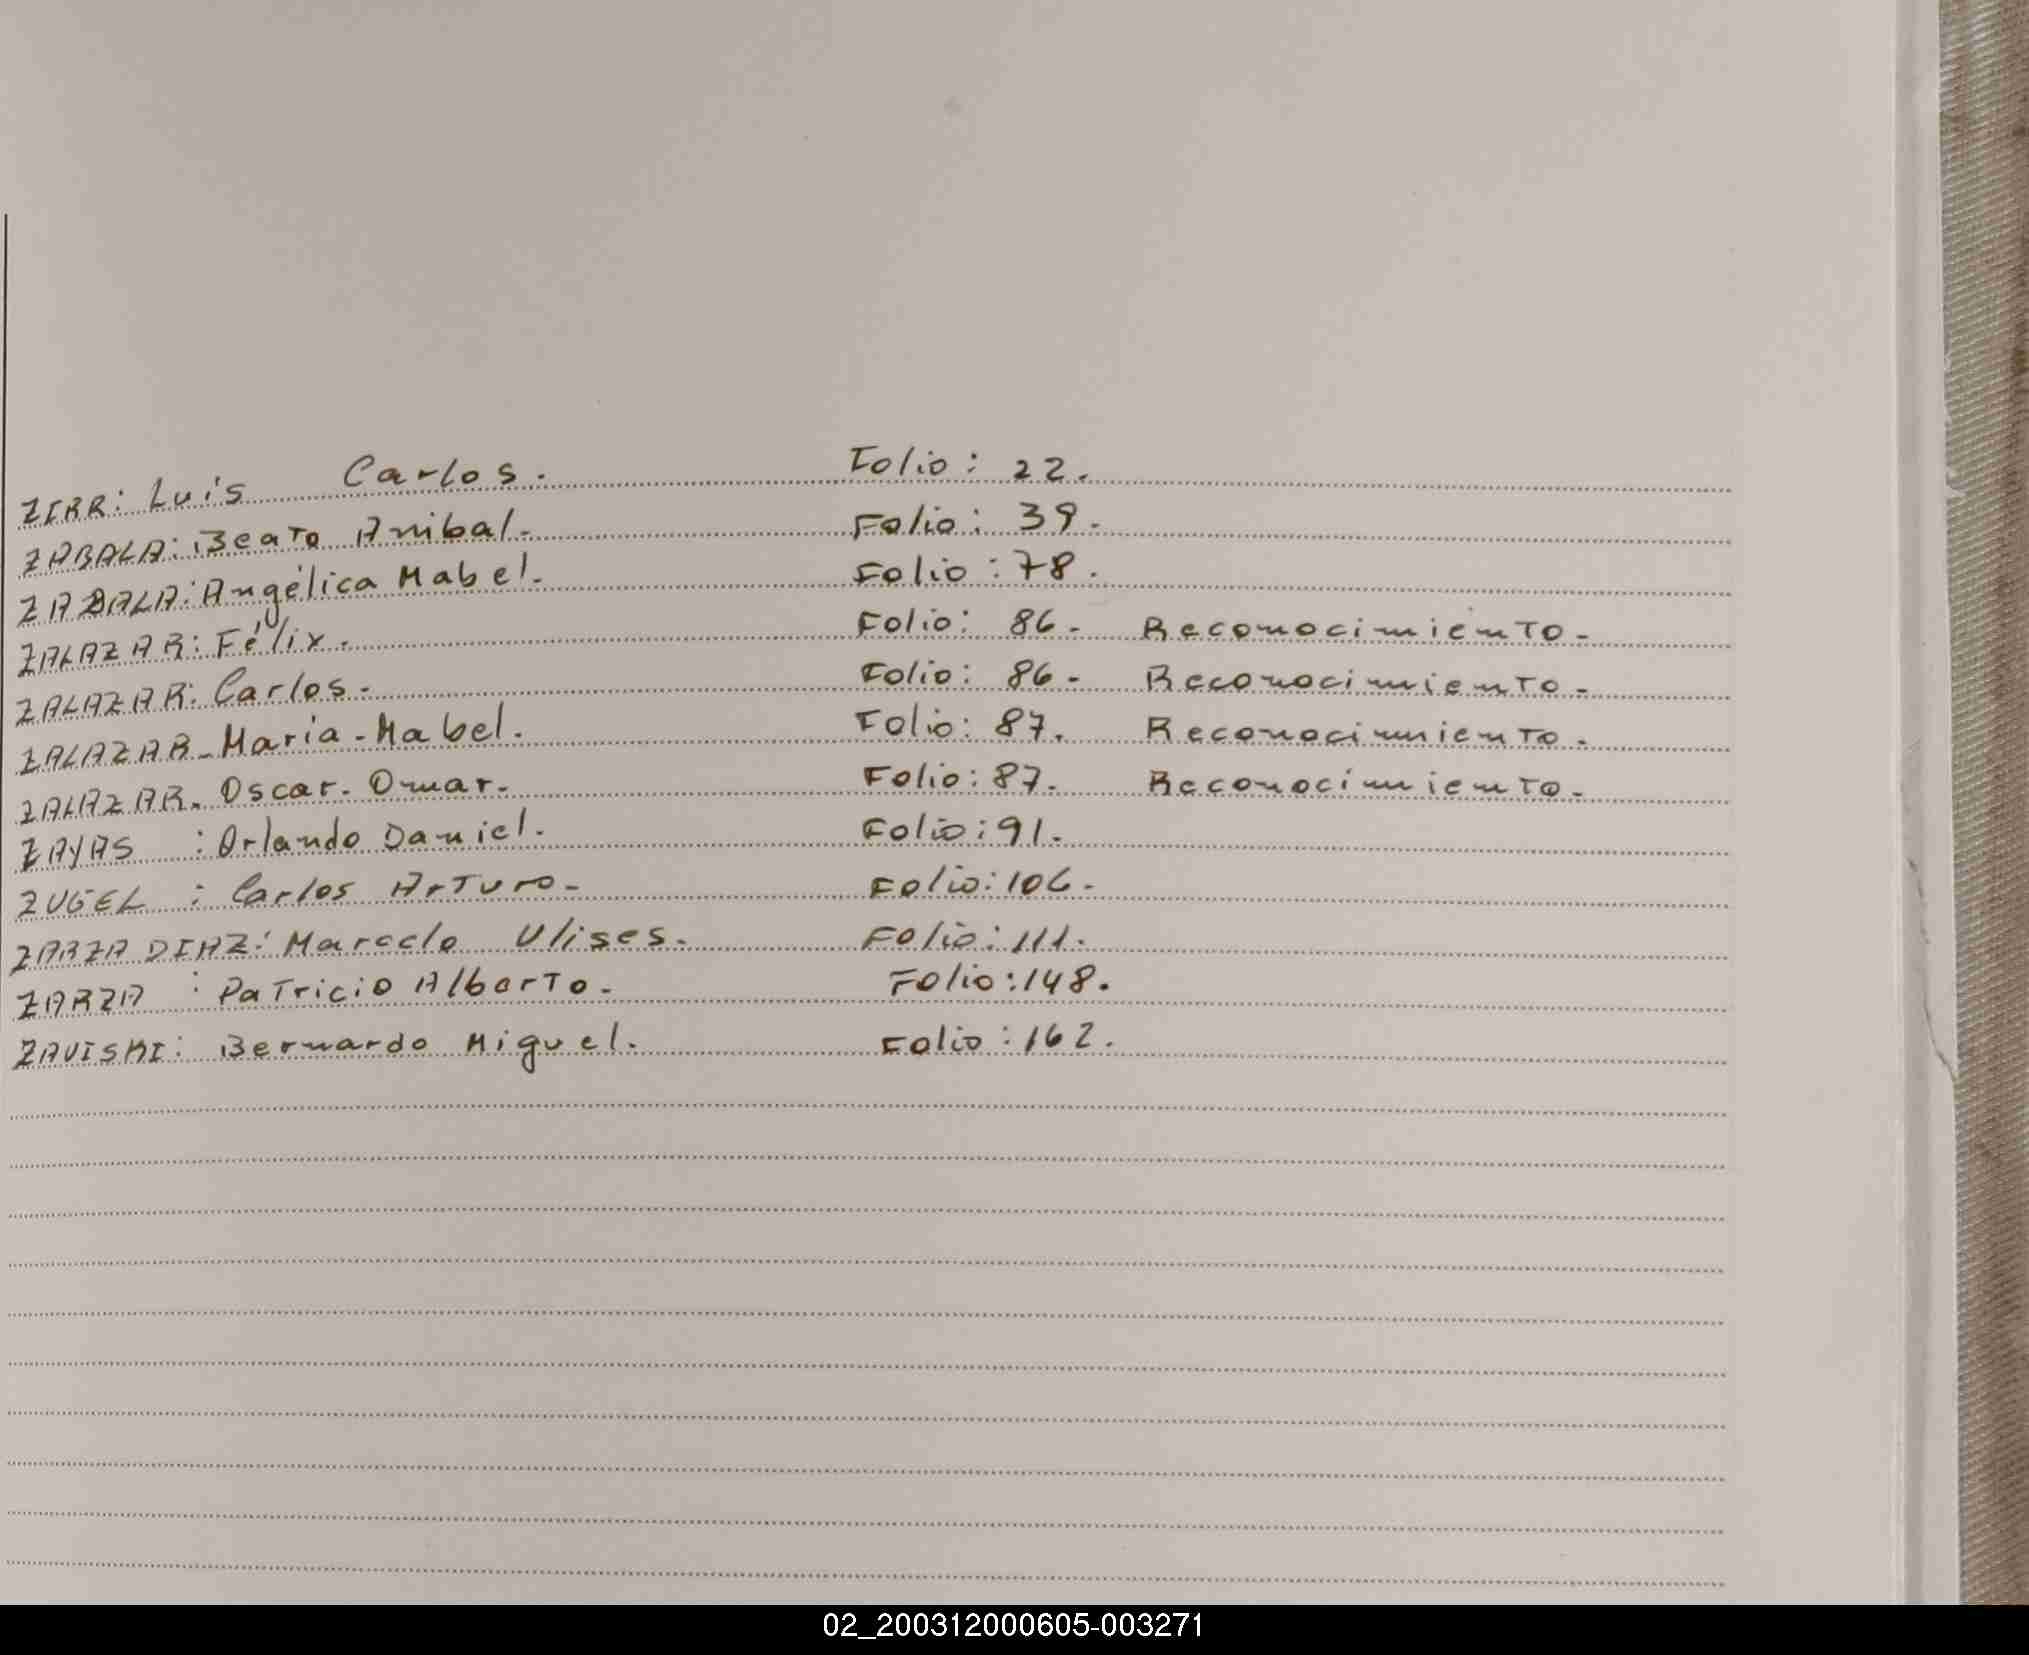 ZIRR: Luis Carlos. Folio: 22.
ZABALA: Beato Anibal. Folio: 39.
ZABALA: Angélica Mabel. Folio: 78.
ZALAZAR: Félix. Folio: 86. Reconocimiento.
ZALAZAR: Carlos. Folio: 86. Reconocimiento.
ZALAZAR. Maria. Mabel. Folio: 87. Reconocimiento.
ZALAZAR. Oscar. Omar. Folio: 87. Reconocimiento.
ZAYAS : Orlando Daniel. Folio: 91.
ZUGEL : Carlos Arturo. Folio: 106.
ZARZA DIAZ: Marcelo Ulises. Folio: 111.
ZARZA : Patricio Alberto. Folio: 148.
ZAVISKI: Bernardo Miguel. Folio: 162.
02_200312000605-003271